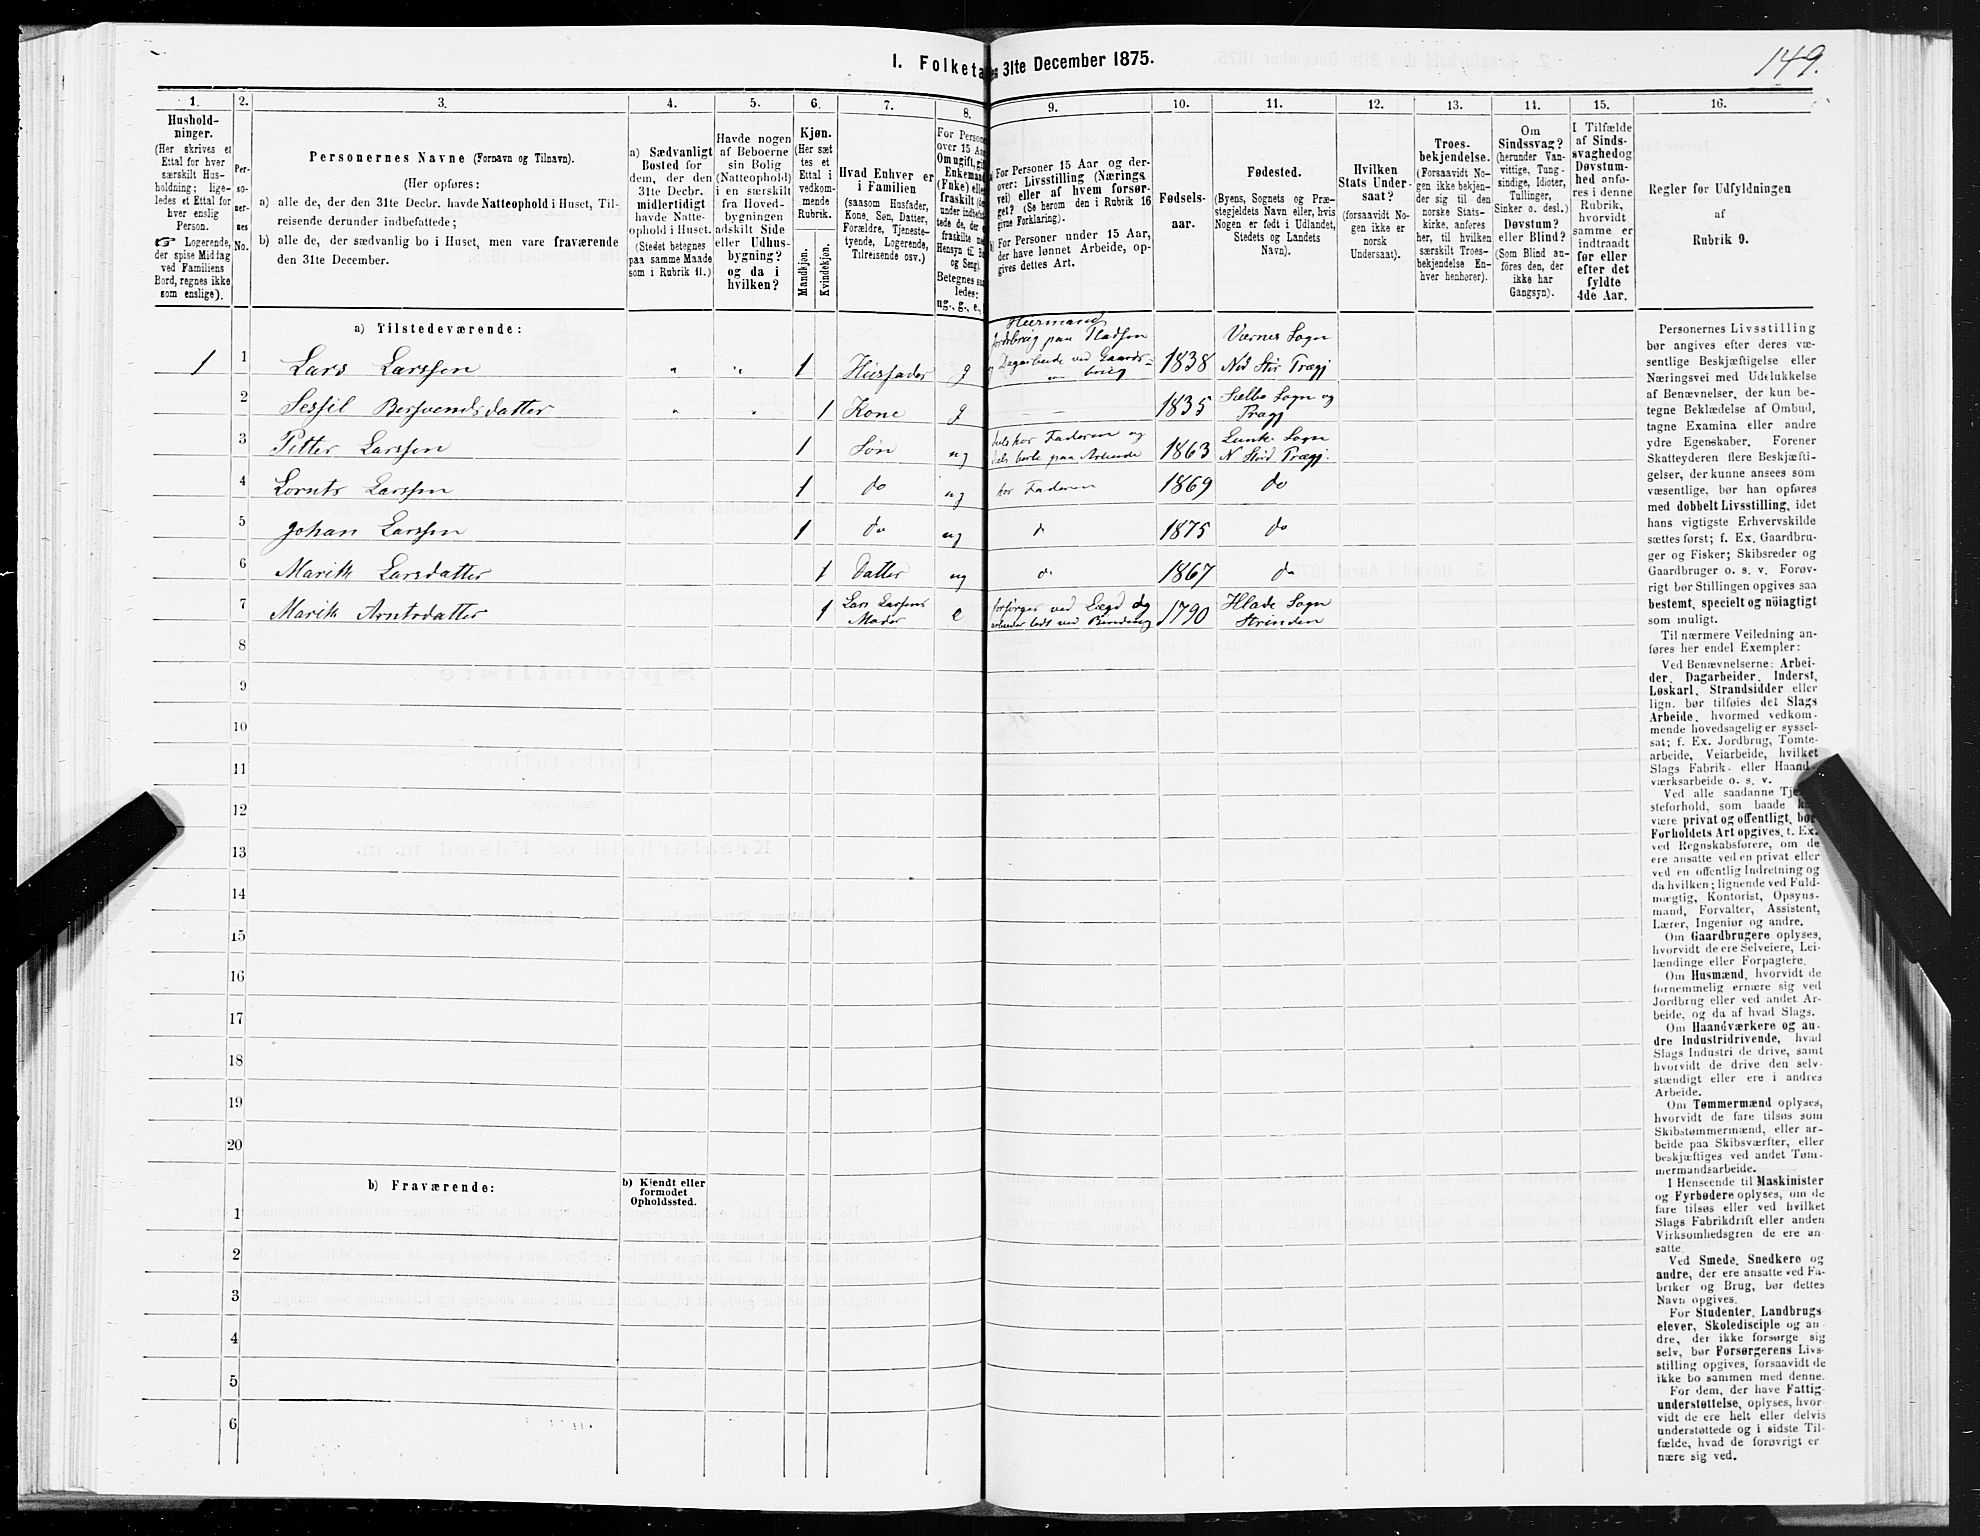 149.
1. Folketa
en 31te December 1875.
1. 2. 3. 4. 5. 6. 7. 8. 9. 10. 11. 12. 13. 14. 15. 16.
Hushold-
ninger.
(Her skrives et
Ettal for hver
særskilt Hus-
holdning; lige-
ledes et Ettal for
hver enslig
Person.
☞ Logerende,
der spise Middag
ved Familiens
Bord, regnes ikke
som enslige).
Per-
so-
ner-
nes
No.
Personernes Navne (Fornavn og Tilnavn).
(Her opføres:
a) alle de, der den 31te Decbr. havde Natteophold i Huset, Til-
reisende derunder indbefattede;
b) alle de, der sædvanlig bo i Huset, men vare fraværende
den 31te December.
a) Sædvanligt
Bosted for
dem, der den
31te Decbr.
midlertidigt
havde Natte-
ophold i Huset.
(Stedet betegnes
paa samme Maade
som i Rubrik 11.)
Havde nogen
af Beboerne
sin Bolig
(Natteophold)
i en særskilt
fra Hoved-
bygningen
adskilt Side
eller Udhus-
bygning?
og da i
hvilken?
Kjøn.
(Her sæt
tes et
Ettal i
vedkom-
mende
Rubrik.
Mandkjøn.
Kvindekjøn.
Hvad Enhver er
i Familien
(saasom Husfader,
Kone, Søn, Datter,
Forældre, Tjeneste-
tyende, Logerende,
Tilreisende osv.)
For Persone
over 15 Aar
Om ugift, gift
Enkemand
(Enke) elle
fraskilt (de
under indbefat
tede de, der e
fraskilte me
Hensyn til Bo
og Seng).
Betegnes saa
ledes:
ug., g., e.,
For Personer 15 Aar og der-
over: Livsstilling (Nærings
vei) eller af hvem forsør-
get? (Se herom den i Rubrik 16
givne Forklaring).
For Personer under 15 Aar,
der have lønnet Arbeide, op-
gives dettes Art.
Fødsels-
aar.
Fødested.
(Byens, Sognets og Præ-
stegjeldets Navn eller, hvis
Nogen er født i Udlandet,
Stedets og Landets
Navn).
Hvilken
Stats Under-
saat?
(forsaavidt No-
gen ikke er
norsk
Undersaat).
Troes-
bekjendelse.
(Forsaavidt No-
gen ikke bekjen-
der sig til den
norske Stats-
kirke, anføres
her, til hvilken
særskilt Troes-
bekjendelse En-
hver henhører).
Om
Sindssvag?
(herunder Van-
vittige, Tung-
sindige, Idioter,
Tullinger,
Sinker o. desl.)
Døvstum?
eller Blind?
(Som Blind an-
føres den, der
ikke har
Gangsyn).
I Tilfælde
af Sinds-
svaghed og
Døvstum-
hed anfø-
res i denne
Rubrik,
hvorvidt
samme er
indtraadt
før eller
efter det
fyldte
4de Aar.
Regler for Udfyldningen
af
Rubrik 9.
a) Tilstedeværende:
1 1 Lars Larssen " " 1 Husfader g Husmand Jordbrug paa Pladsen og Dagarbeide ved Gaards- brug 1838 Værnes Sogn
2 1 Kone g 1835 Sælbo Sogn og
3 Petter Larssen 1 Søn ug dels hos Faderen og dels borte paa Arbeide 1863
4 Lornts Larssen 1 do ug hos Faderen 1869 do
5 Johan Larssen 1 do ug d 1875 do
6 Marith Larsdatter 1 Datter ug d 1867 do
7 Marith Arntsdatter 1 Lars Larssens Moder e forsørges ved Lægd og 1790 Hlade Sogn Strinden
8
9
10
11
12
13
14
15
16
17
18
19
20
b) Fraværende:
b) Kjendt eller
formodet
Opholdssted.
1
2
3
4
5
6
Personernes Livsstilling
bør angives efter deres væ-
sentlige Beskjæftigelse eller
Næringsvei med Udelukkelse
af Benævnelser, der kun be-
tegne Beklædelse af Ombud,
tagne Examina eller andre
ydre Egenskaber. Forener
Skatteyderen flere Beskjæfti-
gelser, der kunne ansees som
væsentlige, bør han opføres
med dobbelt Livsstilling, idet
hans vigtigste Erhvervskilde
sættes først; f. Ex. Gaardbru-
ger og Fisker; Skibsreder og
Gaardbruger o. s. v. Forøv-
rigt bør Stillingen opgives saa
bestemt, specielt og nöiagtigt
som muligt.
Til nærmere Veiledning an-
føres her endel Exempler:
Ved Benævnelserne: Arbei-
der, Dagarbeider, Inderst,
Løskarl, Strandsidder eller
lign. bør tilføies det Slags
Arbeide, hvormed vedkom-
mende hovedsagelig er syssel-
sat; f. Ex. Jordbrug, Tomte-
arbeide, Veiarbeide, hvilket
Slags Fabrik- eller Haand-
værksarbeide o. s. v.
Ved alle saadanne Tje
steforhold, som baade k
være privat og offentligt, bør
Forholdets Art opgives, t. Ex.
ved Regnskabsførere, om de
ere ansatte ved en privat eller
ved en offentlig Indretning og
da hvilken; lignende ved Fuld-
mægtig, Kontorist, Opsyns-
mand, Forvalter, Assistent,
Lærer, Ingeniør og andre.
Om Gaardbrugere oplyses,
hvorvidt de ere Selveiere, Lei-
lændinge eller Forpagtere.
Om Husmænd, hvorvidt de
fornemmelig ernære sig ved
Jordbrug eller ved andet Ar-
beide, og da af hvad Slags.
Om Haandværkere og an-
dre Industridrivende, hvad
Slags Industri de drive, samt
hvorvidt de drive den selv-
stændigt eller ere i andres
Arbeide.
Om Tømmermænd oplyses,
hvorvidt de fare tilsøs som
Skibstømmermænd, eller ar-
beide paa Skibsværfter, eller
beskjæftiges ved andet Tøm-
mermandsarbeide.
I Henseende til Maskinister
og Fyrbødere oplyses, om de
fare tilsøs eller ved hvilket
Slags Fabrikdrift eller anden
Virksomhedsgren de ere an-
satte.
Ved Smede, Snedkere og
andre, der ere ansatte ved Fa-
briker og Brug, bør dettes
Navn opgives.
For Studenter, Landbrugs
elever, Skoledisciple og an
dre, der ikke forsørge sig
selv, bør Forsørgerens Livs-
stilling opgives, forsaavidt de
ikke bo sammen med denne.
For dem, der have Fattig-
understøttelse, oplyses, hvor-
vidt de ere helt eller delvis
understøttede og i sidste Til-
fælde, hvad de forøvrigt er
nære sig ved.